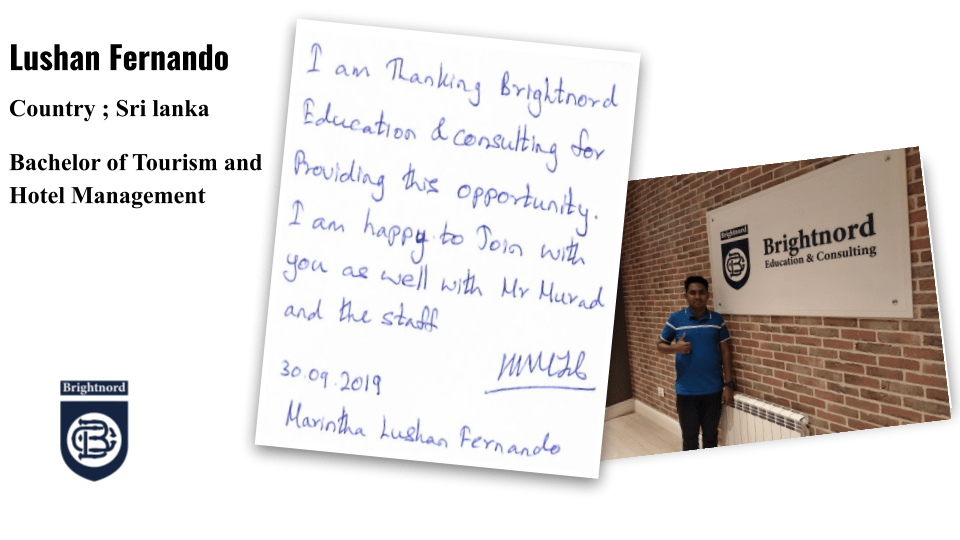 Lushan Fernando
Country ; Sri lanka
Bachelor of Tourism and
Hotel Management
Brightnord
I am Thanking Brightnord
Education & consulting for
Providing this opportunity.
I am happy to Join with
you as well with Mr Murad
and the staff
30.09.2019
Marintha Lushan Fernando
Brightnord
Brightnord
Education & Consulting